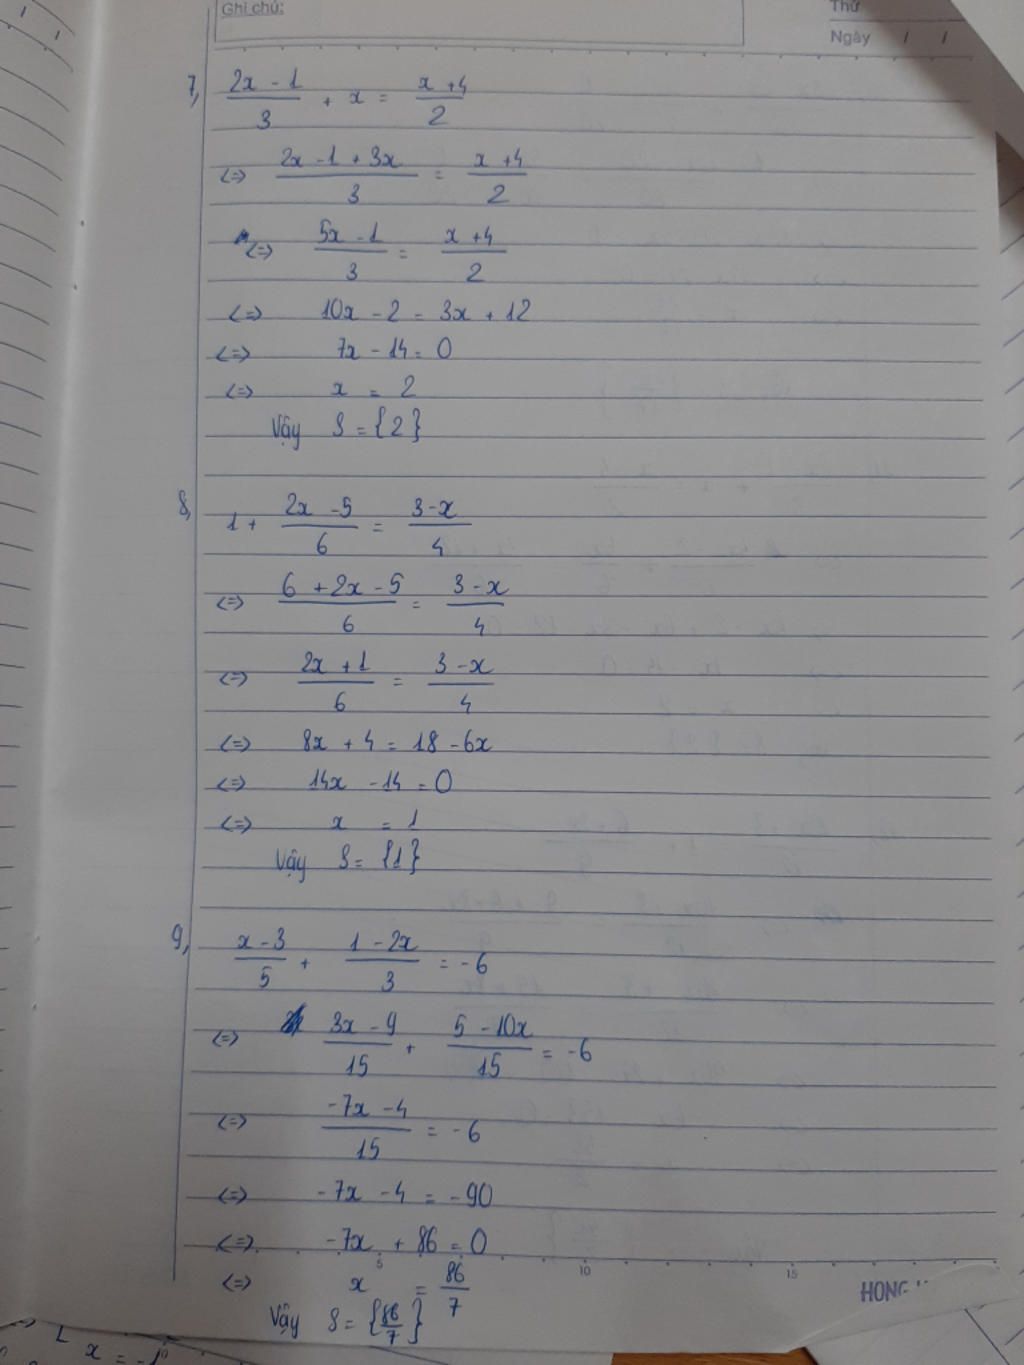 Ghi chú:
Thứ
Ngày / /
7, (2x - 1)/3 + x = (x + 4)/2
<=> (2x - 1 + 3x)/3 = (x + 4)/2
<=> (5x - 1)/3 = (x + 4)/2
<=> 10x - 2 = 3x + 12
<=> 7x - 14 = 0
<=> x = 2
Vậy S = {2}
8, 1 + (2x - 5)/6 = (3 - x)/4
<=> (6 + 2x - 5)/6 = (3 - x)/4
<=> (2x + 1)/6 = (3 - x)/4
<=> 8x + 4 = 18 - 6x
<=> 14x - 14 = 0
<=> x = 1
Vậy S = {1}
9, (x - 3)/5 + (1 - 2x)/3 = -6
<=> (3x - 9)/15 + (5 - 10x)/15 = -6
<=> (-7x - 4)/15 = -6
<=> -7x - 4 = -90
<=> -7x + 86 = 0
5 10 15
<=> x = 86/7
HONG
Vậy S = {86/7}